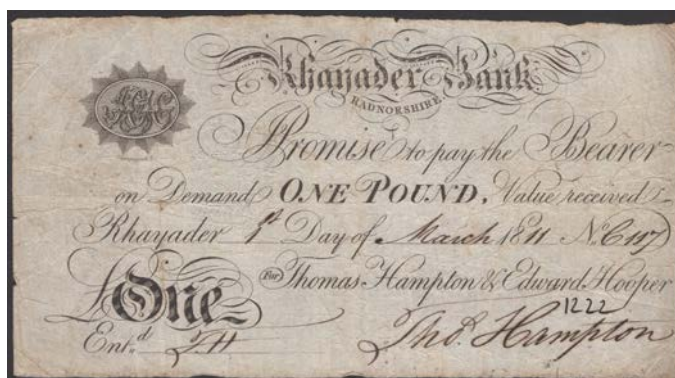 Rhayader Bank
RADNORSHIRE
I Promise to pay the Bearer
on Demand ONE POUND. Value received
Rhayader 1st Day of March 1811 No. C117
£One For Thomas Hampton & Edward Hooper
1222
Ent.d T.H Tho.s Hampton